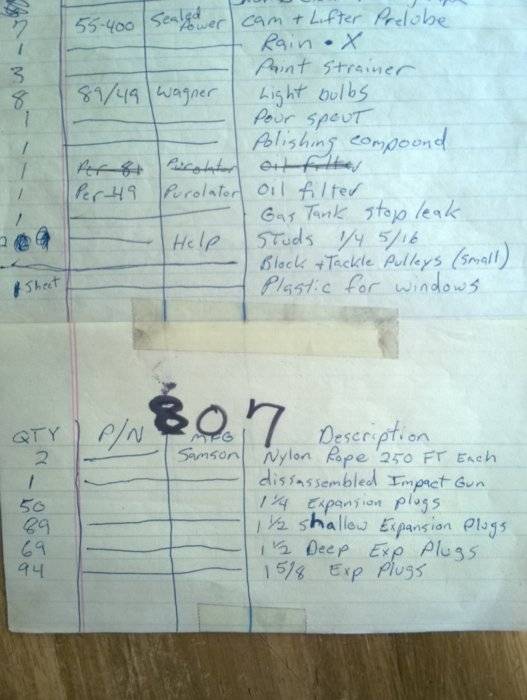 7 55-400 Sealed Power Cam + Lifter Prelube
1 Rain • X
3 Paint Strainer
8 89/49 Wagner Light bulbs
1 Pour spout
1 Polishing compound
1 Per-81 Purolator Oil filter
1 Per-49 Purolator Oil filter
1 Gas Tank stop leak
Help Studs 1/4 5/16
Block + Tackle Pulleys (small)
1 Sheet Plastic for windows
807
QTY P/N MFG Description
2 Samson Nylon Rope 250 FT Each
1 dissassembled Impact Gun
50 1 1/4 Expansion plugs
89 1 1/2 Shallow Expansion Plugs
69 1 1/2 Deep Exp Plugs
94 1 5/8 Exp Plugs